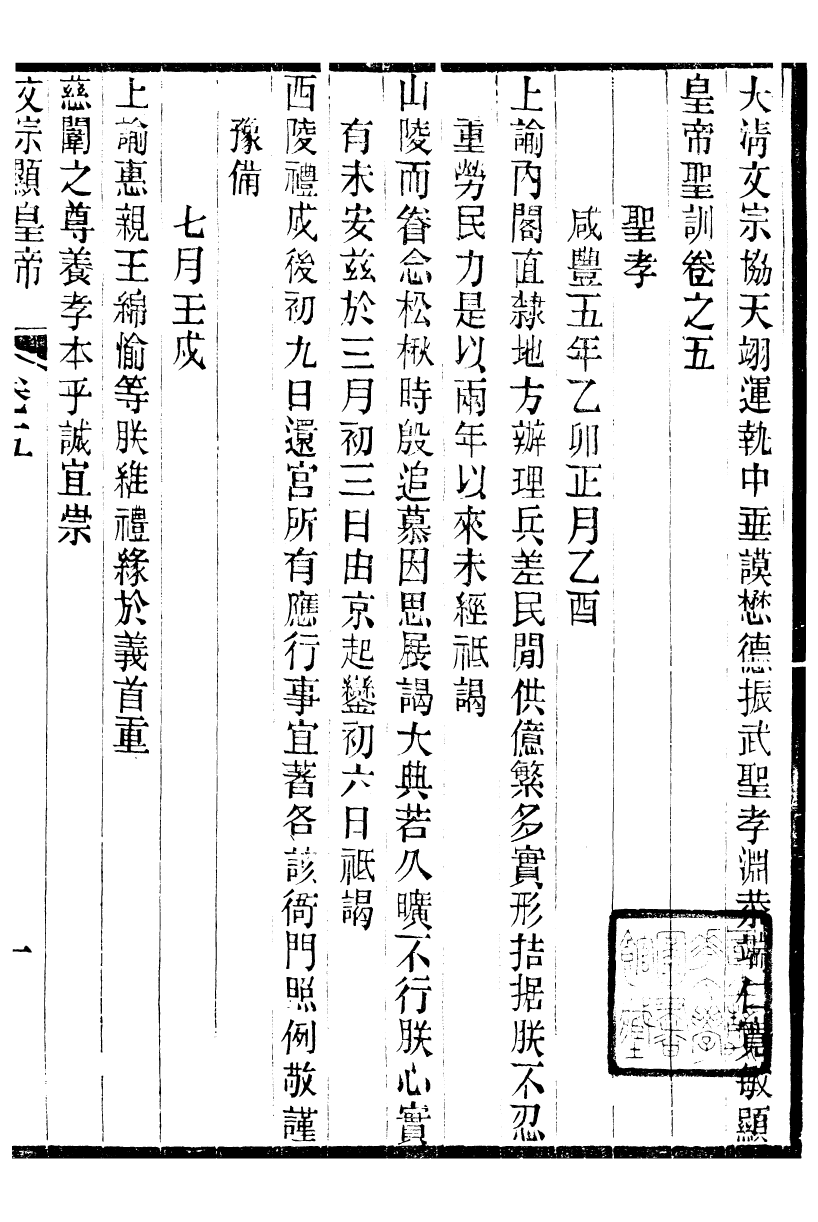 大清文宗協天翊運執中垂謨懋德振武聖孝淵恭端仁寬敏顯
皇帝聖訓卷之五
聖孝
咸豐五年乙卯正月乙酉
上諭內閣直隸地方辦理兵差民閒供億繁多實形拮据朕不忍
重勞民力是以兩年以來未經祗謁
山陵而眷念松楸時殷追慕因思展謁大典若久曠不行朕心實
有未安茲於三月初三日由京起鑾初六日祗謁
西陵禮成後初九日還宮所有應行事宜著各該衙門照例敬謹
豫備
七月壬戌
上諭惠親王綿愉等朕維禮緣於義首重
慈闈之尊養孝本乎誠宜崇
文宗顯皇帝 卷五 一